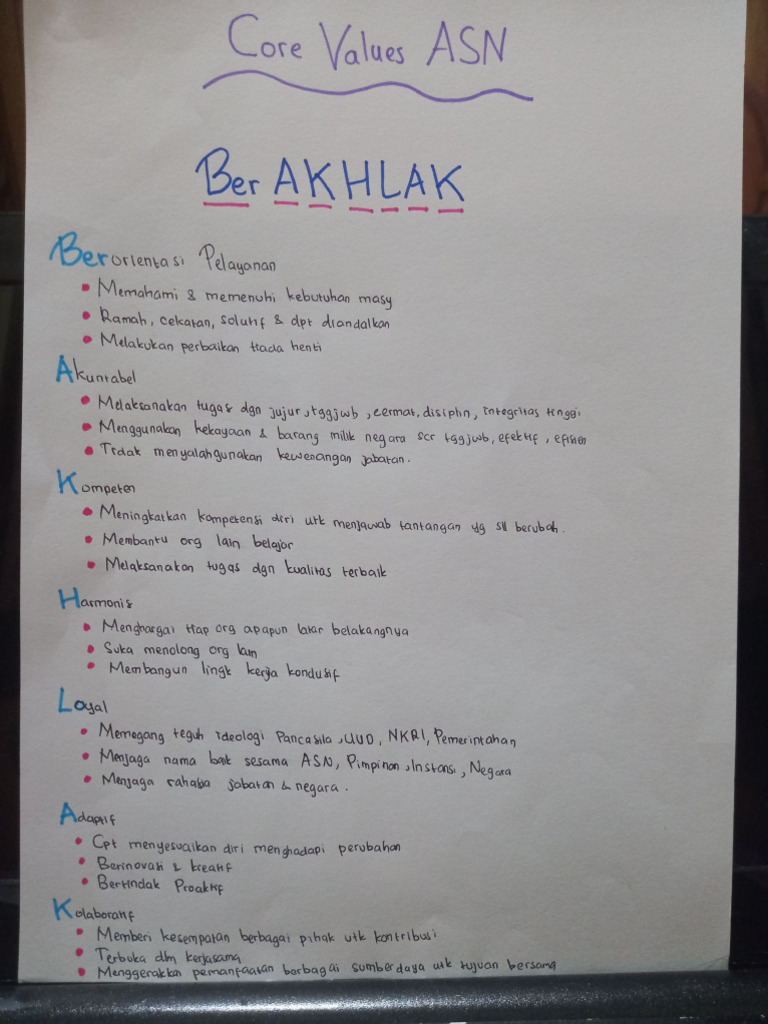 Core Values ASN
Ber AKHLAK
Berorientasi Pelayanan
• Memahami & memenuhi kebutuhan masy
• Ramah, cekatan, solutif & dpt diandalkan
• Melakukan perbaikan tiada henti
Akuntabel
• Melaksanakan tugas dgn jujur, tggjwb, cermat, disiplin, integritas tinggi
• Menggunakan kekayaan & barang milik negara scr tggjwb, efektif, efisien
• Tidak menyalahgunakan kewenangan jabatan.
Kompeten
• Meningkatkan kompetensi diri utk menjawab tantangan yg sll berubah.
• Membantu org lain belajar
• Melaksanakan tugas dgn kualitas terbaik
Harmonis
• Menghargai tiap org apapun latar belakangnya
• Suka menolong org lain
• Membangun lingk kerja kondusif
Loyal
• Memegang teguh ideologi Pancasila, UUD, NKRI, Pemerintahan
• Menjaga nama baik sesama ASN, Pimpinan, Instansi, Negara
• Menjaga rahasia jabatan & negara.
Adaptif
• Cpt menyesuaikan diri menghadapi perubahan
• Berinovasi & kreatif
• Bertindak Proaktif
Kolaboratif
• Memberi kesempatan berbagai pihak utk kontribusi
• Terbuka dlm kerjasama
• Menggerakkan pemanfaatan berbagai sumberdaya utk tujuan bersama